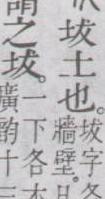 坺土也。
坺字各
牆壁。
謂之坺。
一下各本
廣韵十三